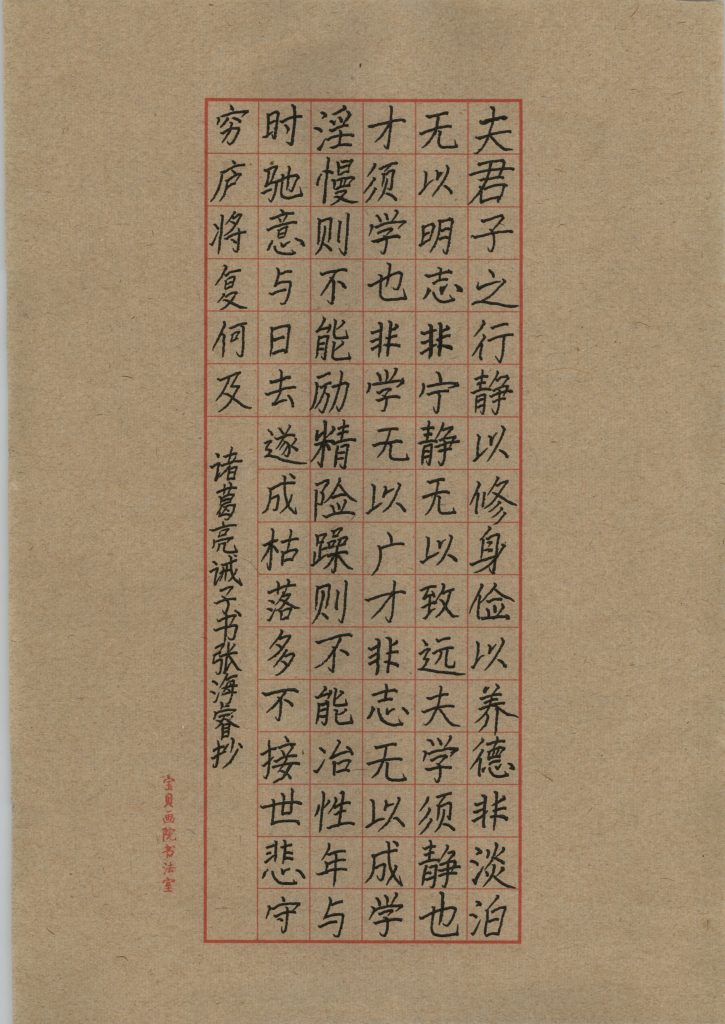 夫君子之行静以修身俭以养德非淡泊
无以明志非宁静无以致远夫学须静也
才须学也非学无以广才非志无以成学
淫慢则不能励精险躁则不能冶性年与
时驰意与日去遂成枯落多不接世悲守
穷庐将复何及
诸葛亮诫子书张海睿抄
宝贝画院书法室